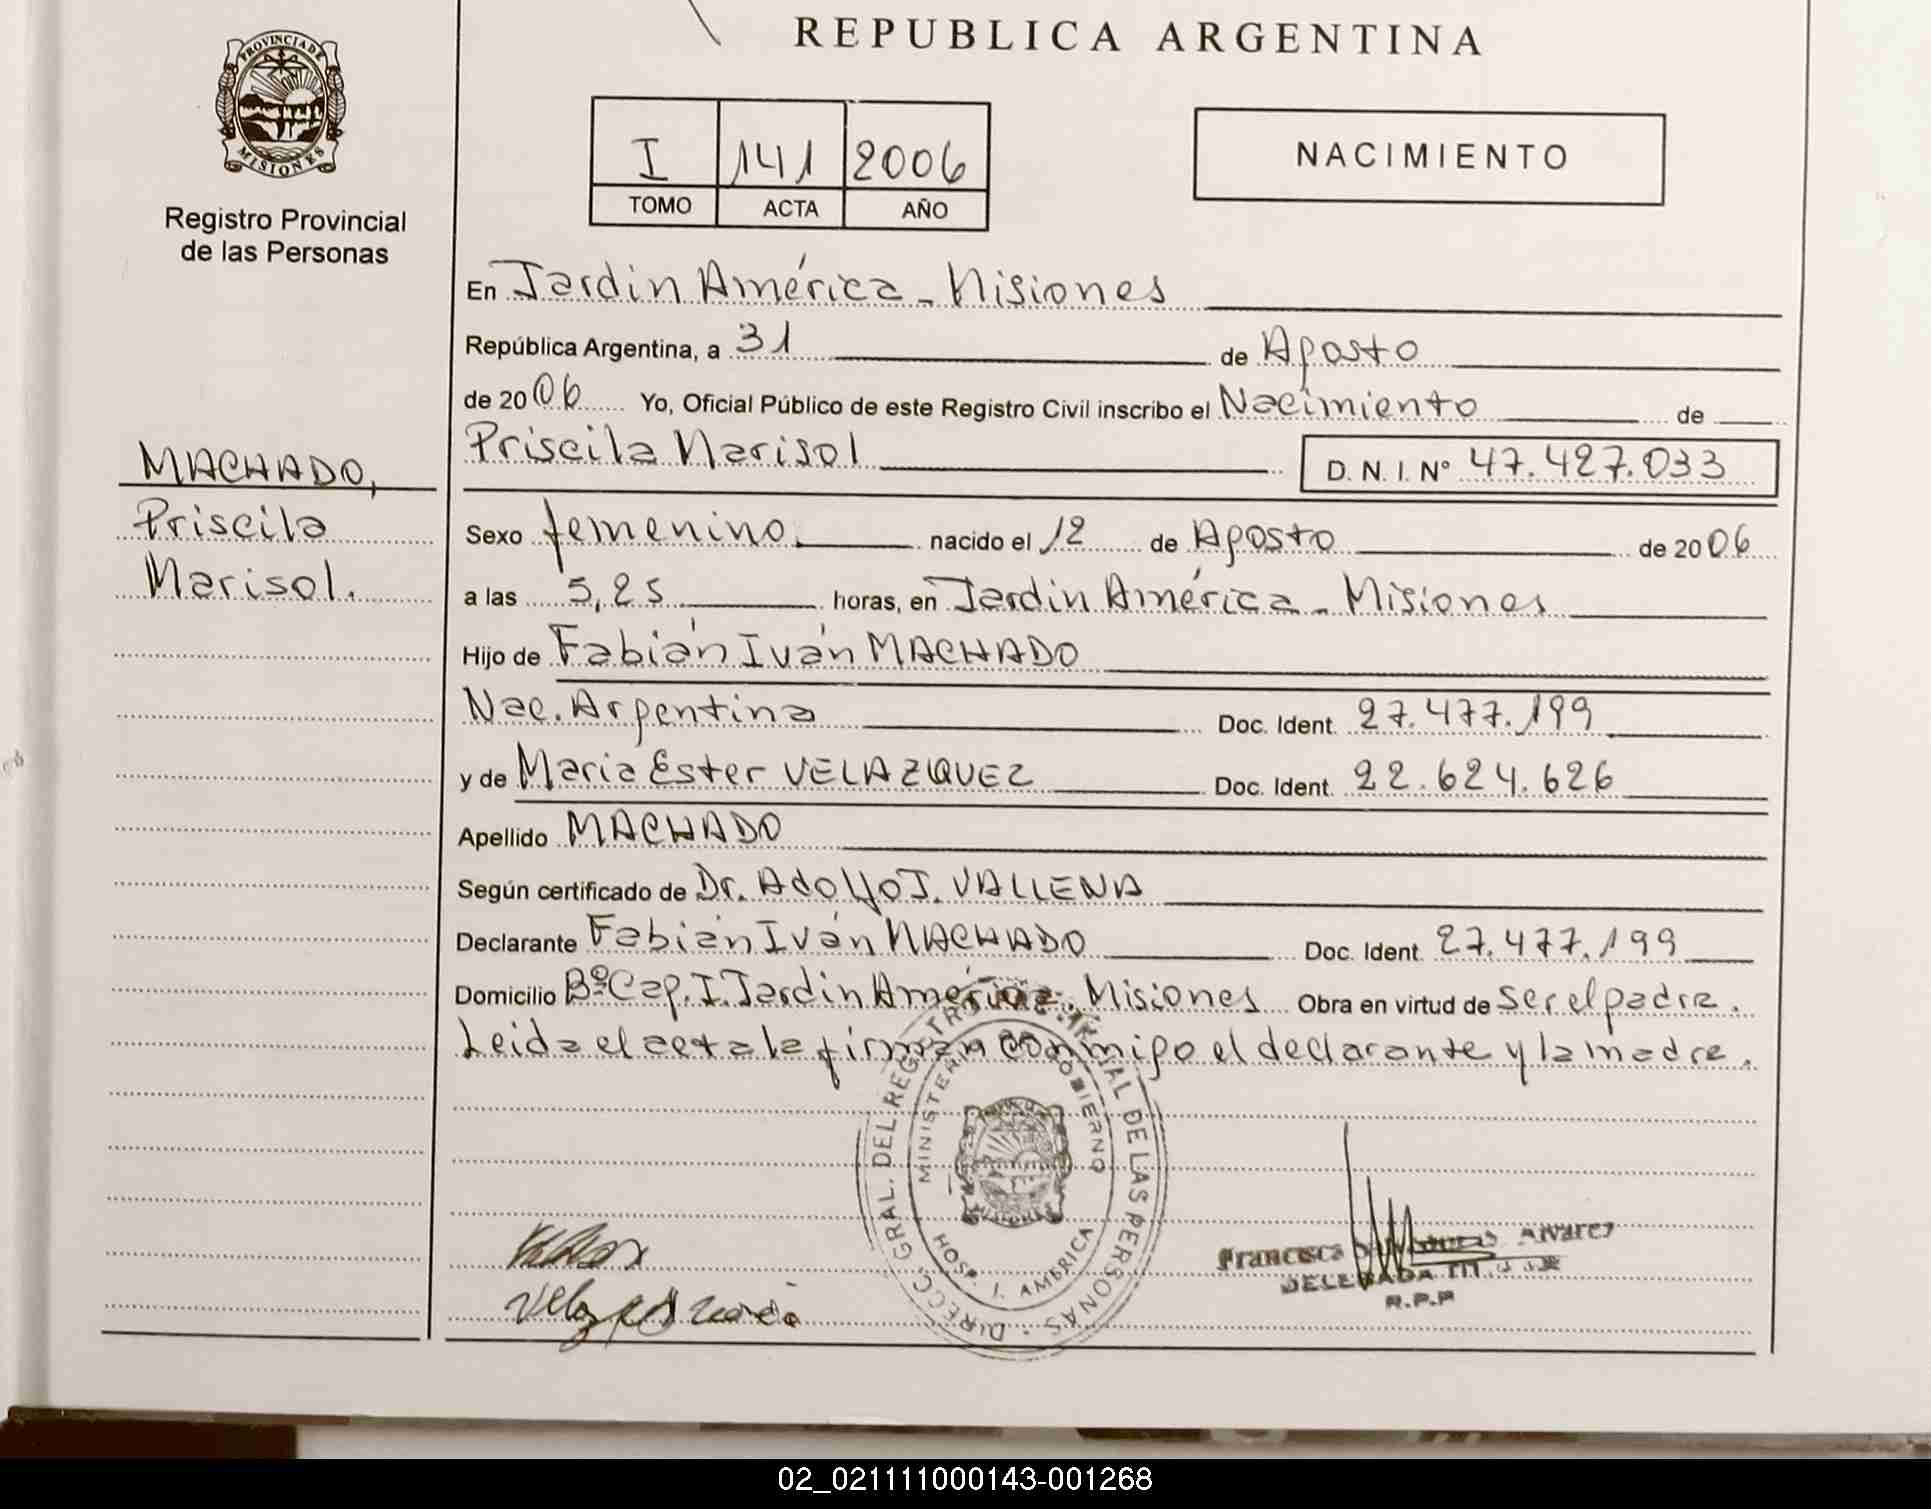 REPUBLICA ARGENTINA
PROVINCIA DE
MISIONES
Registro Provincial
de las Personas
I 141 2006
TOMO ACTA AÑO
NACIMIENTO
En Jardín América - Misiones
República Argentina, a 31 de Agosto
de 2006 Yo, Oficial Público de este Registro Civil inscribo el Nacimiento de
Priscila Marisol D. N. I. Nº 47.427.033
MACHADO,
Priscila
Marisol.
Sexo femenino nacido el 12 de Agosto de 2006
a las 5,25 horas, en Jardín América - Misiones
Hijo de Fabián Iván MACHADO
Nac. Argentina Doc. Ident. 27.477.199
y de María Ester VELAZQUEZ Doc. Ident. 22.624.626
Apellido MACHADO
Según certificado de Dr. Adolfo J. VALLENA
Declarante Fabián Iván MACHADO Doc. Ident. 27.477.199
Domicilio Bº Cap. I. Jardín América - Misiones Obra en virtud de ser el padre.
Leida el acta la firman conmigo el declarante y la madre.
DIRECC. GRAL. DEL REGISTRO PROVINCIAL DE LAS PERSONAS
MINISTERIO DE GOBIERNO
HOSP. J. AMERICA
Francisca Alvarez
DELEGADA
R.P.P
02_021111000143-001268